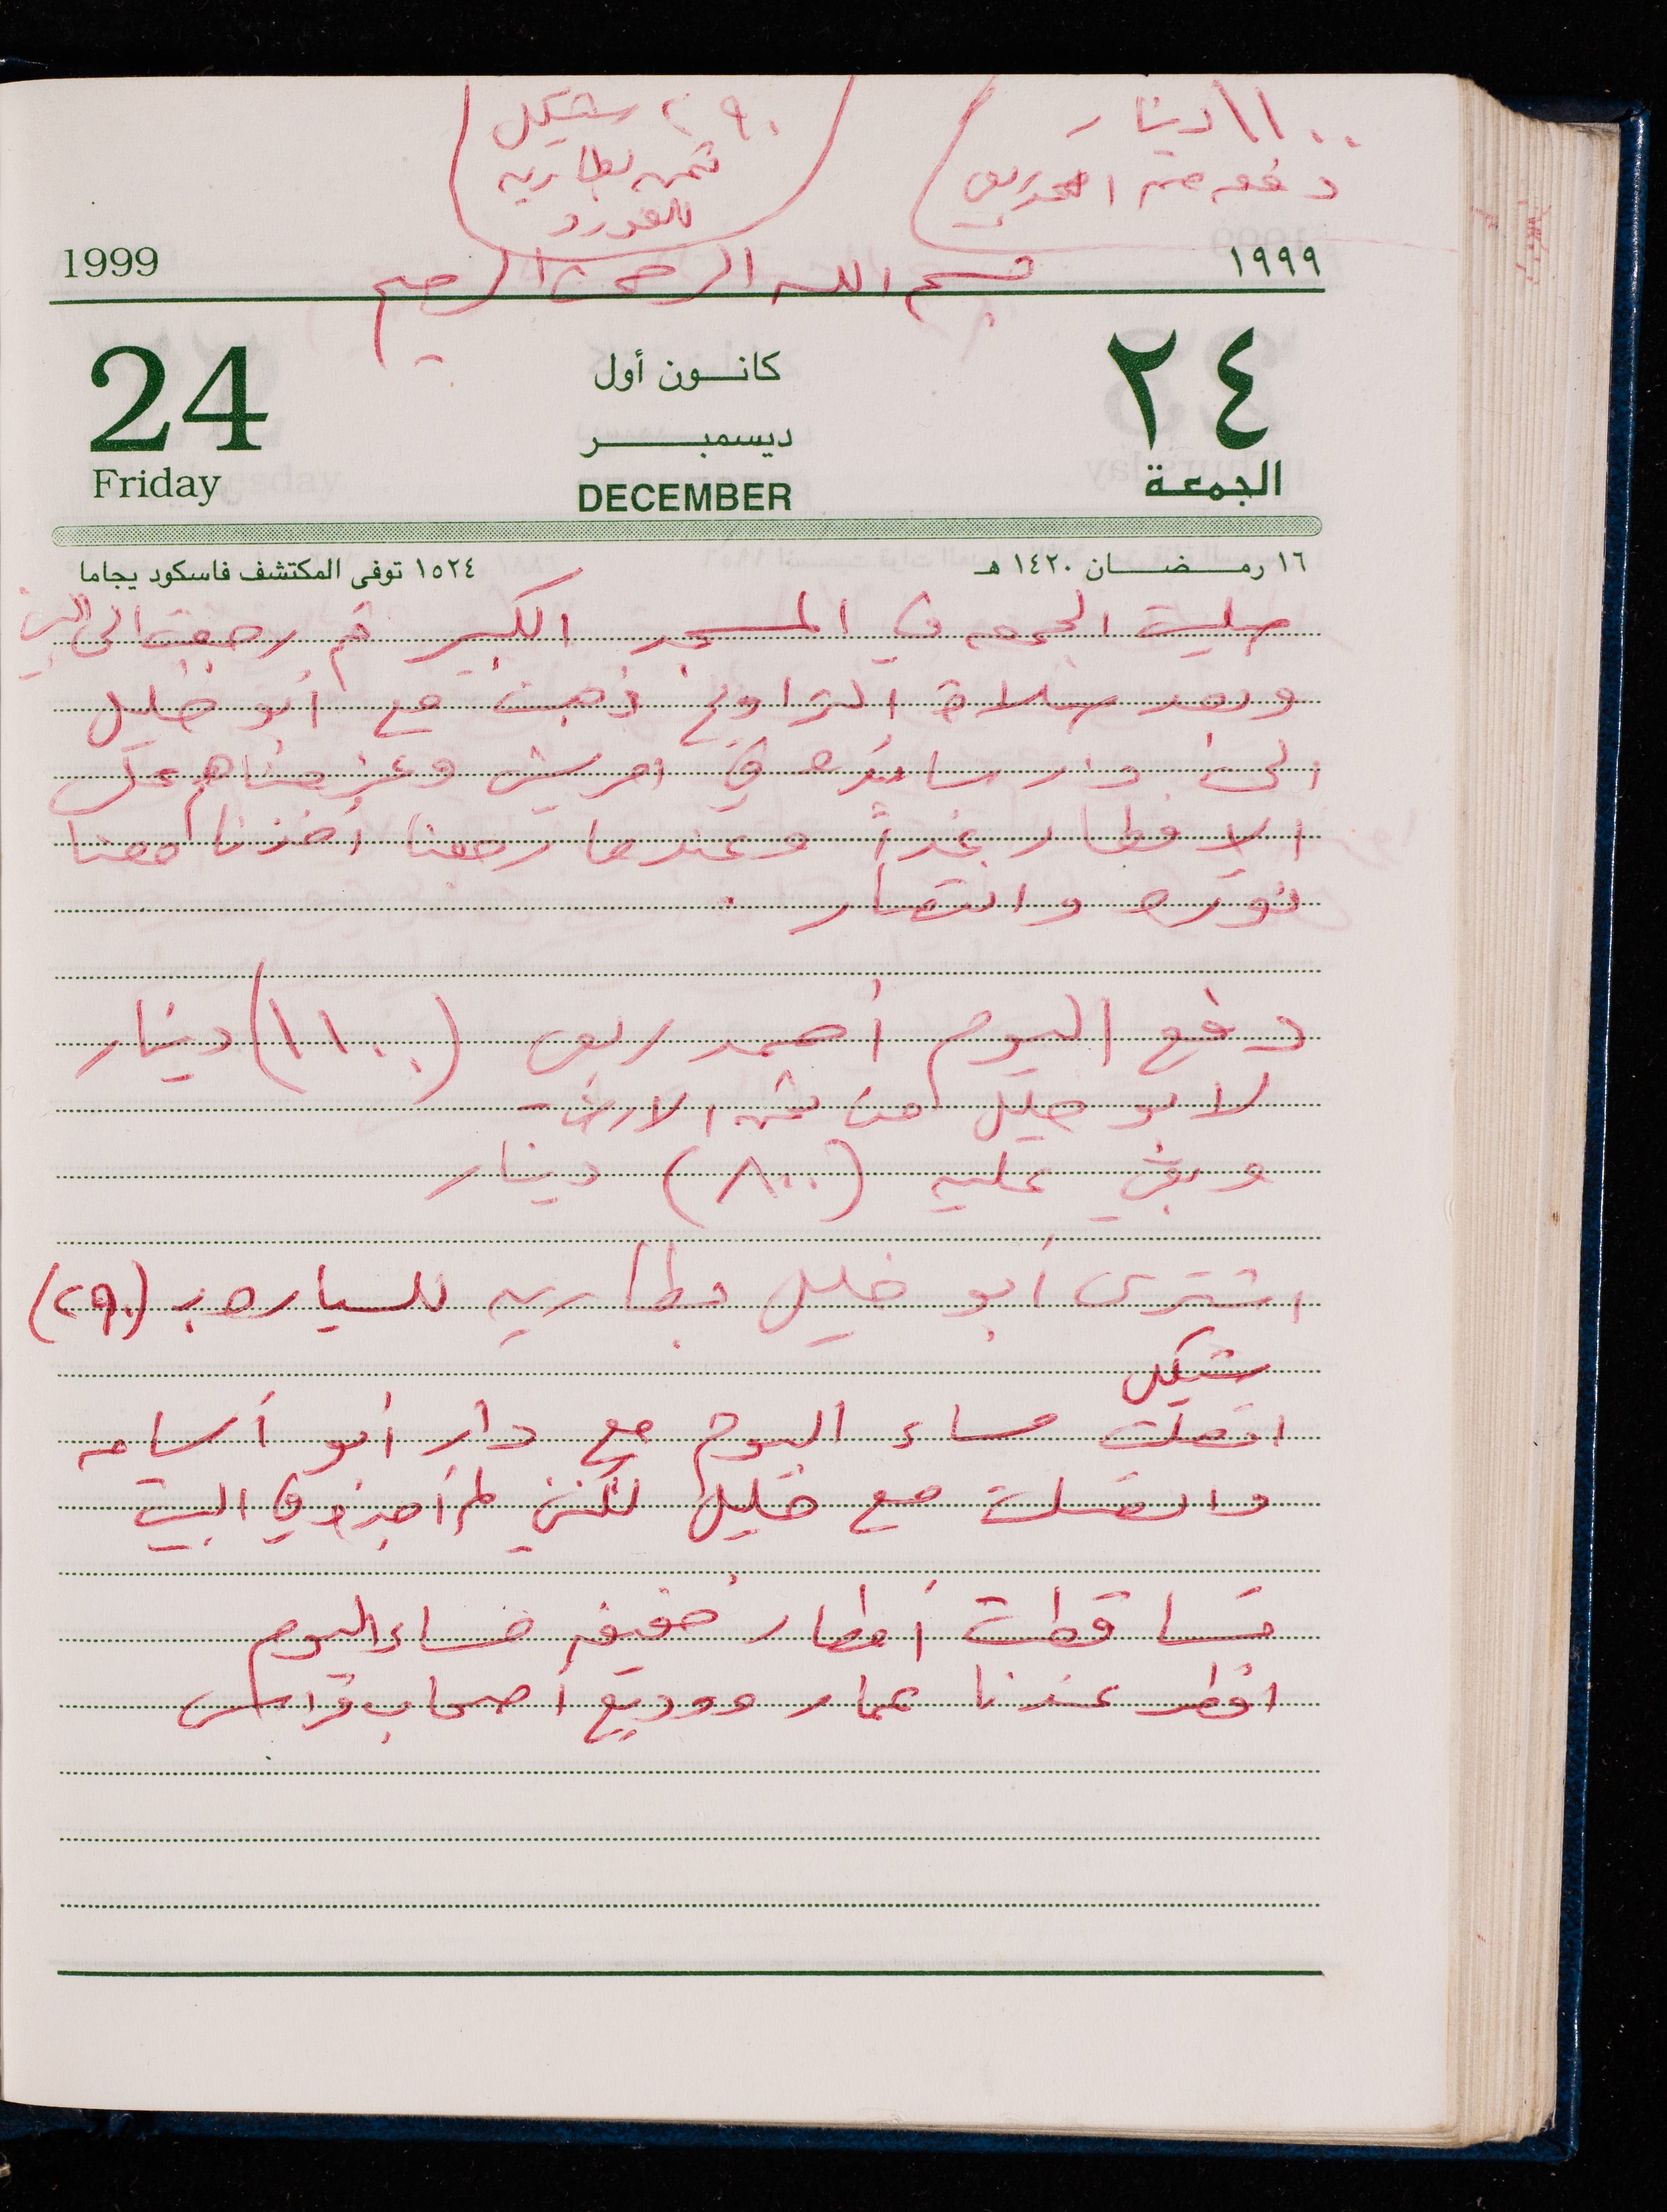 ١١٠٠ دينار
دفعه من احمد ربعي
٢٩٠ شيكل
ثمن بطاريه
للفورد
1999
١٩٩٩
بسم الله الرحمن الرحيم
24
كانون أول
٢٤
ديسمبر
Friday
DECEMBER
الجمعة
١٦ رمضان ١٤٢٠ هـ
١٥٢٤ توفي المكتشف فاسكود يجاما
صليت الجمعه في المسجد الكبير ثم رجعت الى البيت
وبعد صلاة التراويح ذهبت مع أبو خليل
الى دار سائده في امريش وعزمناهم على
الافطار غداً وعندما رجعنا أخذنا معنا
نوره وانتصار .
دفع اليوم أحمد ربعي (١١٠٠) دينار
لابو خليل من ثمن الارض -
وبقي عليه (٨٠٠) دينار
اشترى أبو خليل بطاريه للسياره ب (٢٩٠)
شيكل
اتصلت مساء اليوم مع دار أبو أسامه
واتصلت مع خليل لكنني لم أجده في البيت
تساقطت أمطار خفيفه مساء اليوم
افطر عندنا عمار ووديع أصحاب فراس